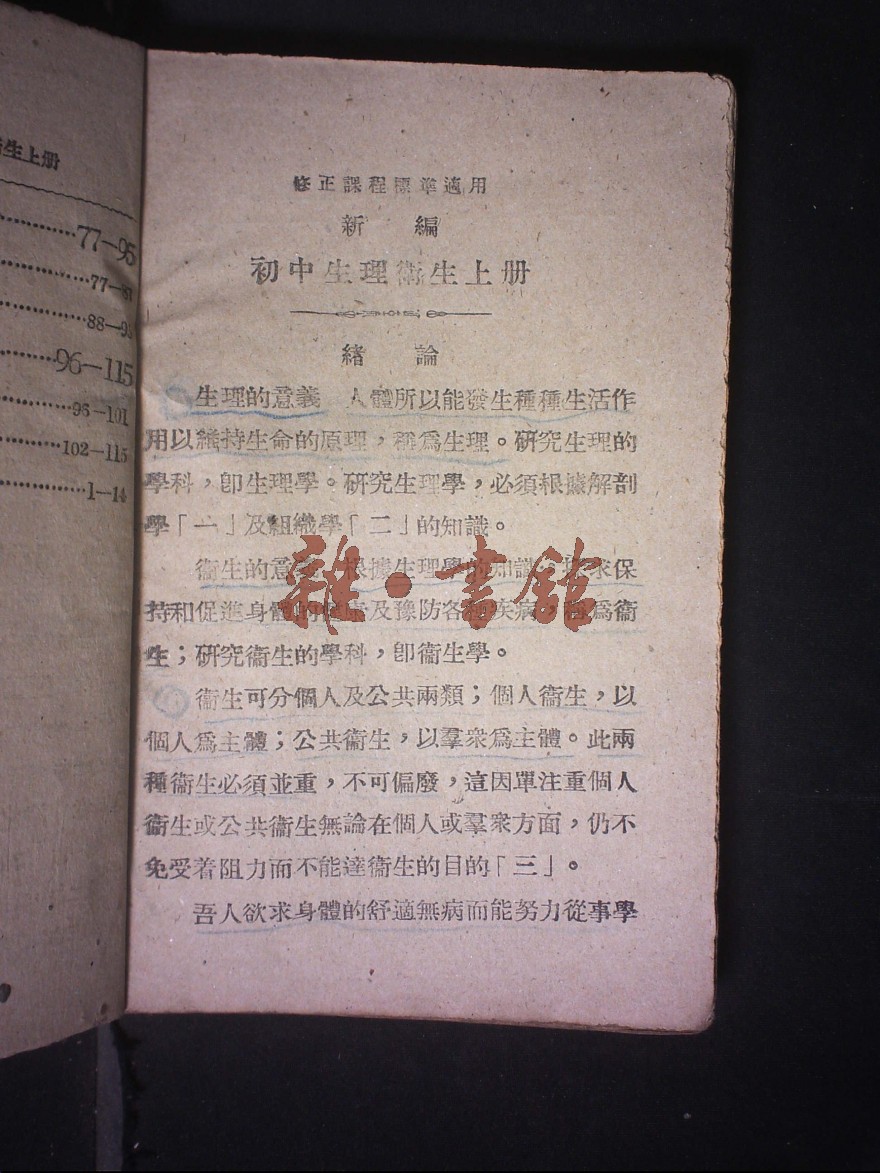 生上册
77—95
88—9
96—115
96—101
102—115
1—14
修正課程標準適用
新編
初中生理衞生上册
緒論
生理的意義 人體所以能發生種種生活作
用以維持生命的原理，稱爲生理。研究生理的
學科，卽生理學。研究生理學，必須根據解剖
學「一」及組織學「二」的知識。
衞生的意義 根據生理學的知識，求保
持和促進身體的健康及豫防各種疾病，稱爲衞
生；研究衞生的學科，卽衞生學。
衞生可分個人及公共兩類；個人衞生，以
個人爲主體；公共衞生，以羣衆爲主體。此兩
種衞生必須並重，不可偏廢，這因單注重個人
衞生或公共衞生無論在個人或羣衆方面，仍不
免受着阻力而不能達衞生的目的「三」。
吾人欲求身體的舒適無病而能努力從事學
雜·書館